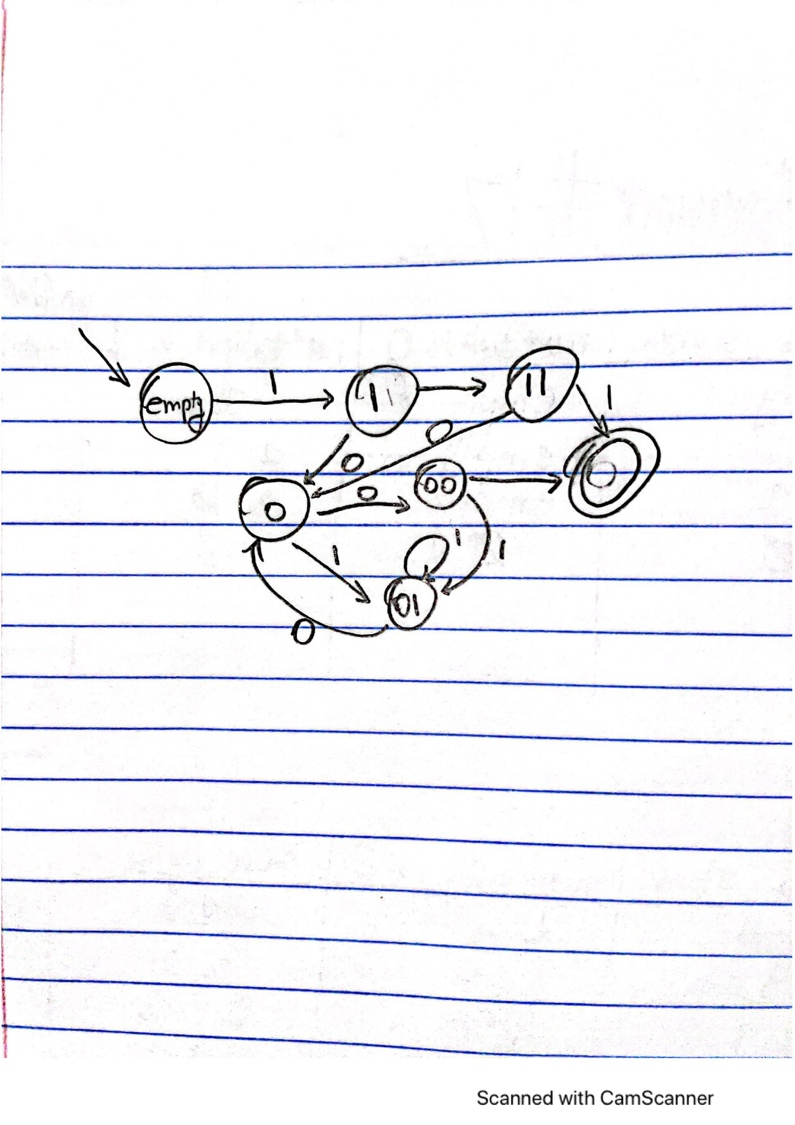 1
1
empty
1
11
0
0
0
0
00
1
1
1
01
0
Scanned with CamScanner